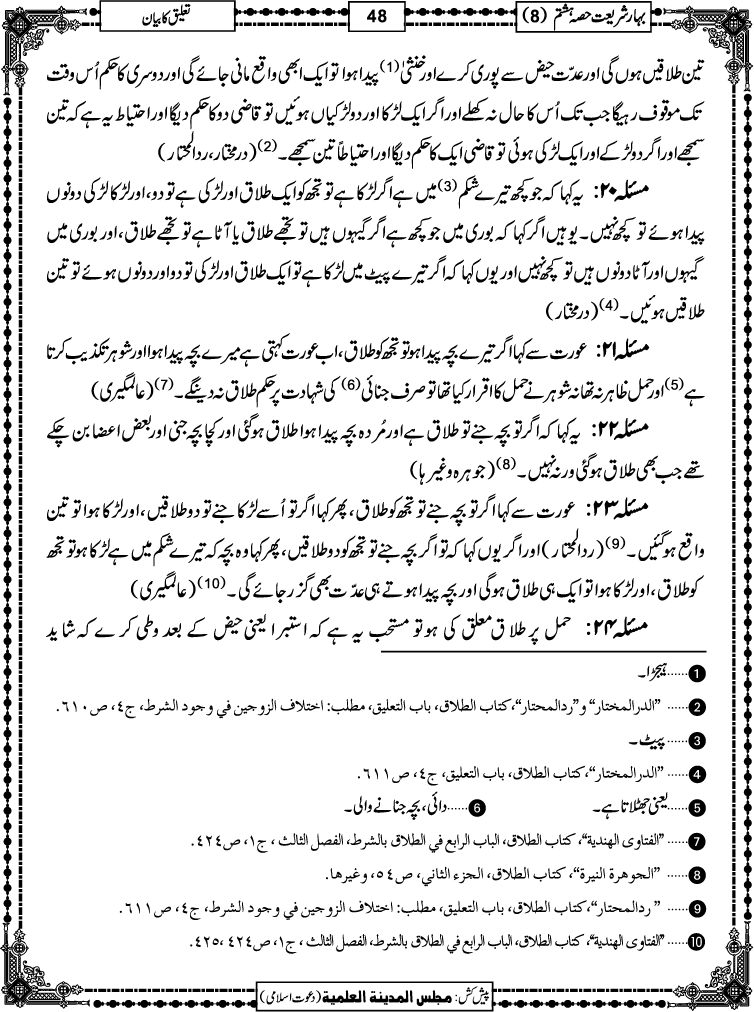 بہار شریعت حصہ ہشتم (8)
48
تعلیق کا بیان
تین طلاقیں ہوں گی اور عدّت حیض سے پوری کرے اور خنثیٰ (1) پیدا ہوا تو ایک ابھی واقع مانی جائے گی اور دوسری کا حکم اُس وقت
تک موقوف رہیگا جب تک اُس کا حال نہ کھلے اور اگر ایک لڑکا اور دو لڑکیاں ہوئیں تو قاضی دو کا حکم دیگا اور احتیاط یہ ہے کہ تین
سمجھے اور اگر دو لڑکے اور ایک لڑکی ہوئی تو قاضی ایک کا حکم دیگا اور احتیاطاً تین سمجھے۔ (2) (درمختار، ردالمحتار)
مسئلہ ۲۰: یہ کہا کہ جو کچھ تیرے شکم (3) میں ہے اگر لڑکا ہے تو تجھ کو ایک طلاق اور لڑکی ہے تو دو، اور لڑکا لڑکی دونوں
پیدا ہوئے تو کچھ نہیں۔ یوہیں اگر کہا کہ بوری میں جو کچھ ہے اگر گیہوں ہیں تو تجھے طلاق یا آٹا ہے تو تجھے طلاق، اور بوری میں
گیہوں اور آٹا دونوں ہیں تو کچھ نہیں اور یوں کہا کہ اگر تیرے پیٹ میں لڑکا ہے تو ایک طلاق اور لڑکی تو دو اور دونوں ہوئے تو تین
طلاقیں ہوئیں۔ (4) (درمختار)
مسئلہ ۲۱: عورت سے کہا اگر تیرے بچہ پیدا ہو تو تجھ کو طلاق، اب عورت کہتی ہے میرے بچہ پیدا ہوا اور شوہر تکذیب کرتا
ہے (5) اور حمل ظاہر نہ تھا نہ شوہر نے حمل کا اقرار کیا تھا تو صرف جنائی (6) کی شہادت پر حکم طلاق نہ دینگے۔ (7) (عالمگیری)
مسئلہ ۲۲: یہ کہا کہ اگر تو بچہ جنے تو طلاق ہے اور مُردہ بچہ پیدا ہوا طلاق ہوگئی اور کچا بچہ جنی اور بعض اعضا بن چکے
تھے جب بھی طلاق ہوگئی ورنہ نہیں۔ (8) (جوہرہ وغیرہا)
مسئلہ ۲۳: عورت سے کہا اگر تو بچہ جنے تو تجھ کو طلاق، پھر کہا اگر تو اُسے لڑکا جنے تو دو طلاقیں، اور لڑکا ہوا تو تین
واقع ہوگئیں۔ (9) (ردالمحتار) اور اگر یوں کہا کہ تو اگر بچہ جنے تو تجھ کو دو طلاقیں، پھر کہا وہ بچہ کہ تیرے شکم میں ہے لڑکا ہو تو تجھ
کو طلاق، اور لڑکا ہوا تو ایک ہی طلاق ہوگی اور بچہ پیدا ہوتے ہی عدّت بھی گزر جائے گی۔ (10) (عالمگیری)
مسئلہ ۲۴: حمل پر طلاق معلق کی ہو تو مستحب یہ ہے کہ استبرا یعنی حیض کے بعد وطی کرے کہ شاید
1 ......ہیجڑا۔
2 ...... "الدرالمختار" و"ردالمحتار"، کتاب الطلاق، باب التعلیق، مطلب: اختلاف الزوجین في وجود الشرط، ج٤، ص٦١٠.
3 ......پیٹ۔
4 ...... "الدرالمختار"، کتاب الطلاق، باب التعلیق، ج٤، ص٦١١.
5 ......یعنی جھٹلاتا ہے۔ 6 ......دائی، بچہ جنانے والی۔
7 ...... "الفتاوی الھندیة"، کتاب الطلاق، الباب الرابع في الطلاق بالشرط، الفصل الثالث، ج١، ص٤٢٤.
8 ...... "الجوھرة النیرة"، کتاب الطلاق، الجزء الثاني، ص٥٤، وغیرھا.
9 ...... "ردالمحتار"، کتاب الطلاق، باب التعلیق، مطلب: اختلاف الزوجین في وجود الشرط، ج٤، ص٦١١.
10 ...... "الفتاوی الھندیة"، کتاب الطلاق، الباب الرابع في الطلاق بالشرط، الفصل الثالث، ج١، ص٤٢٤، ٤٢٥.
پیش کش: مجلس المدینة العلمیة (دعوت اسلامی)